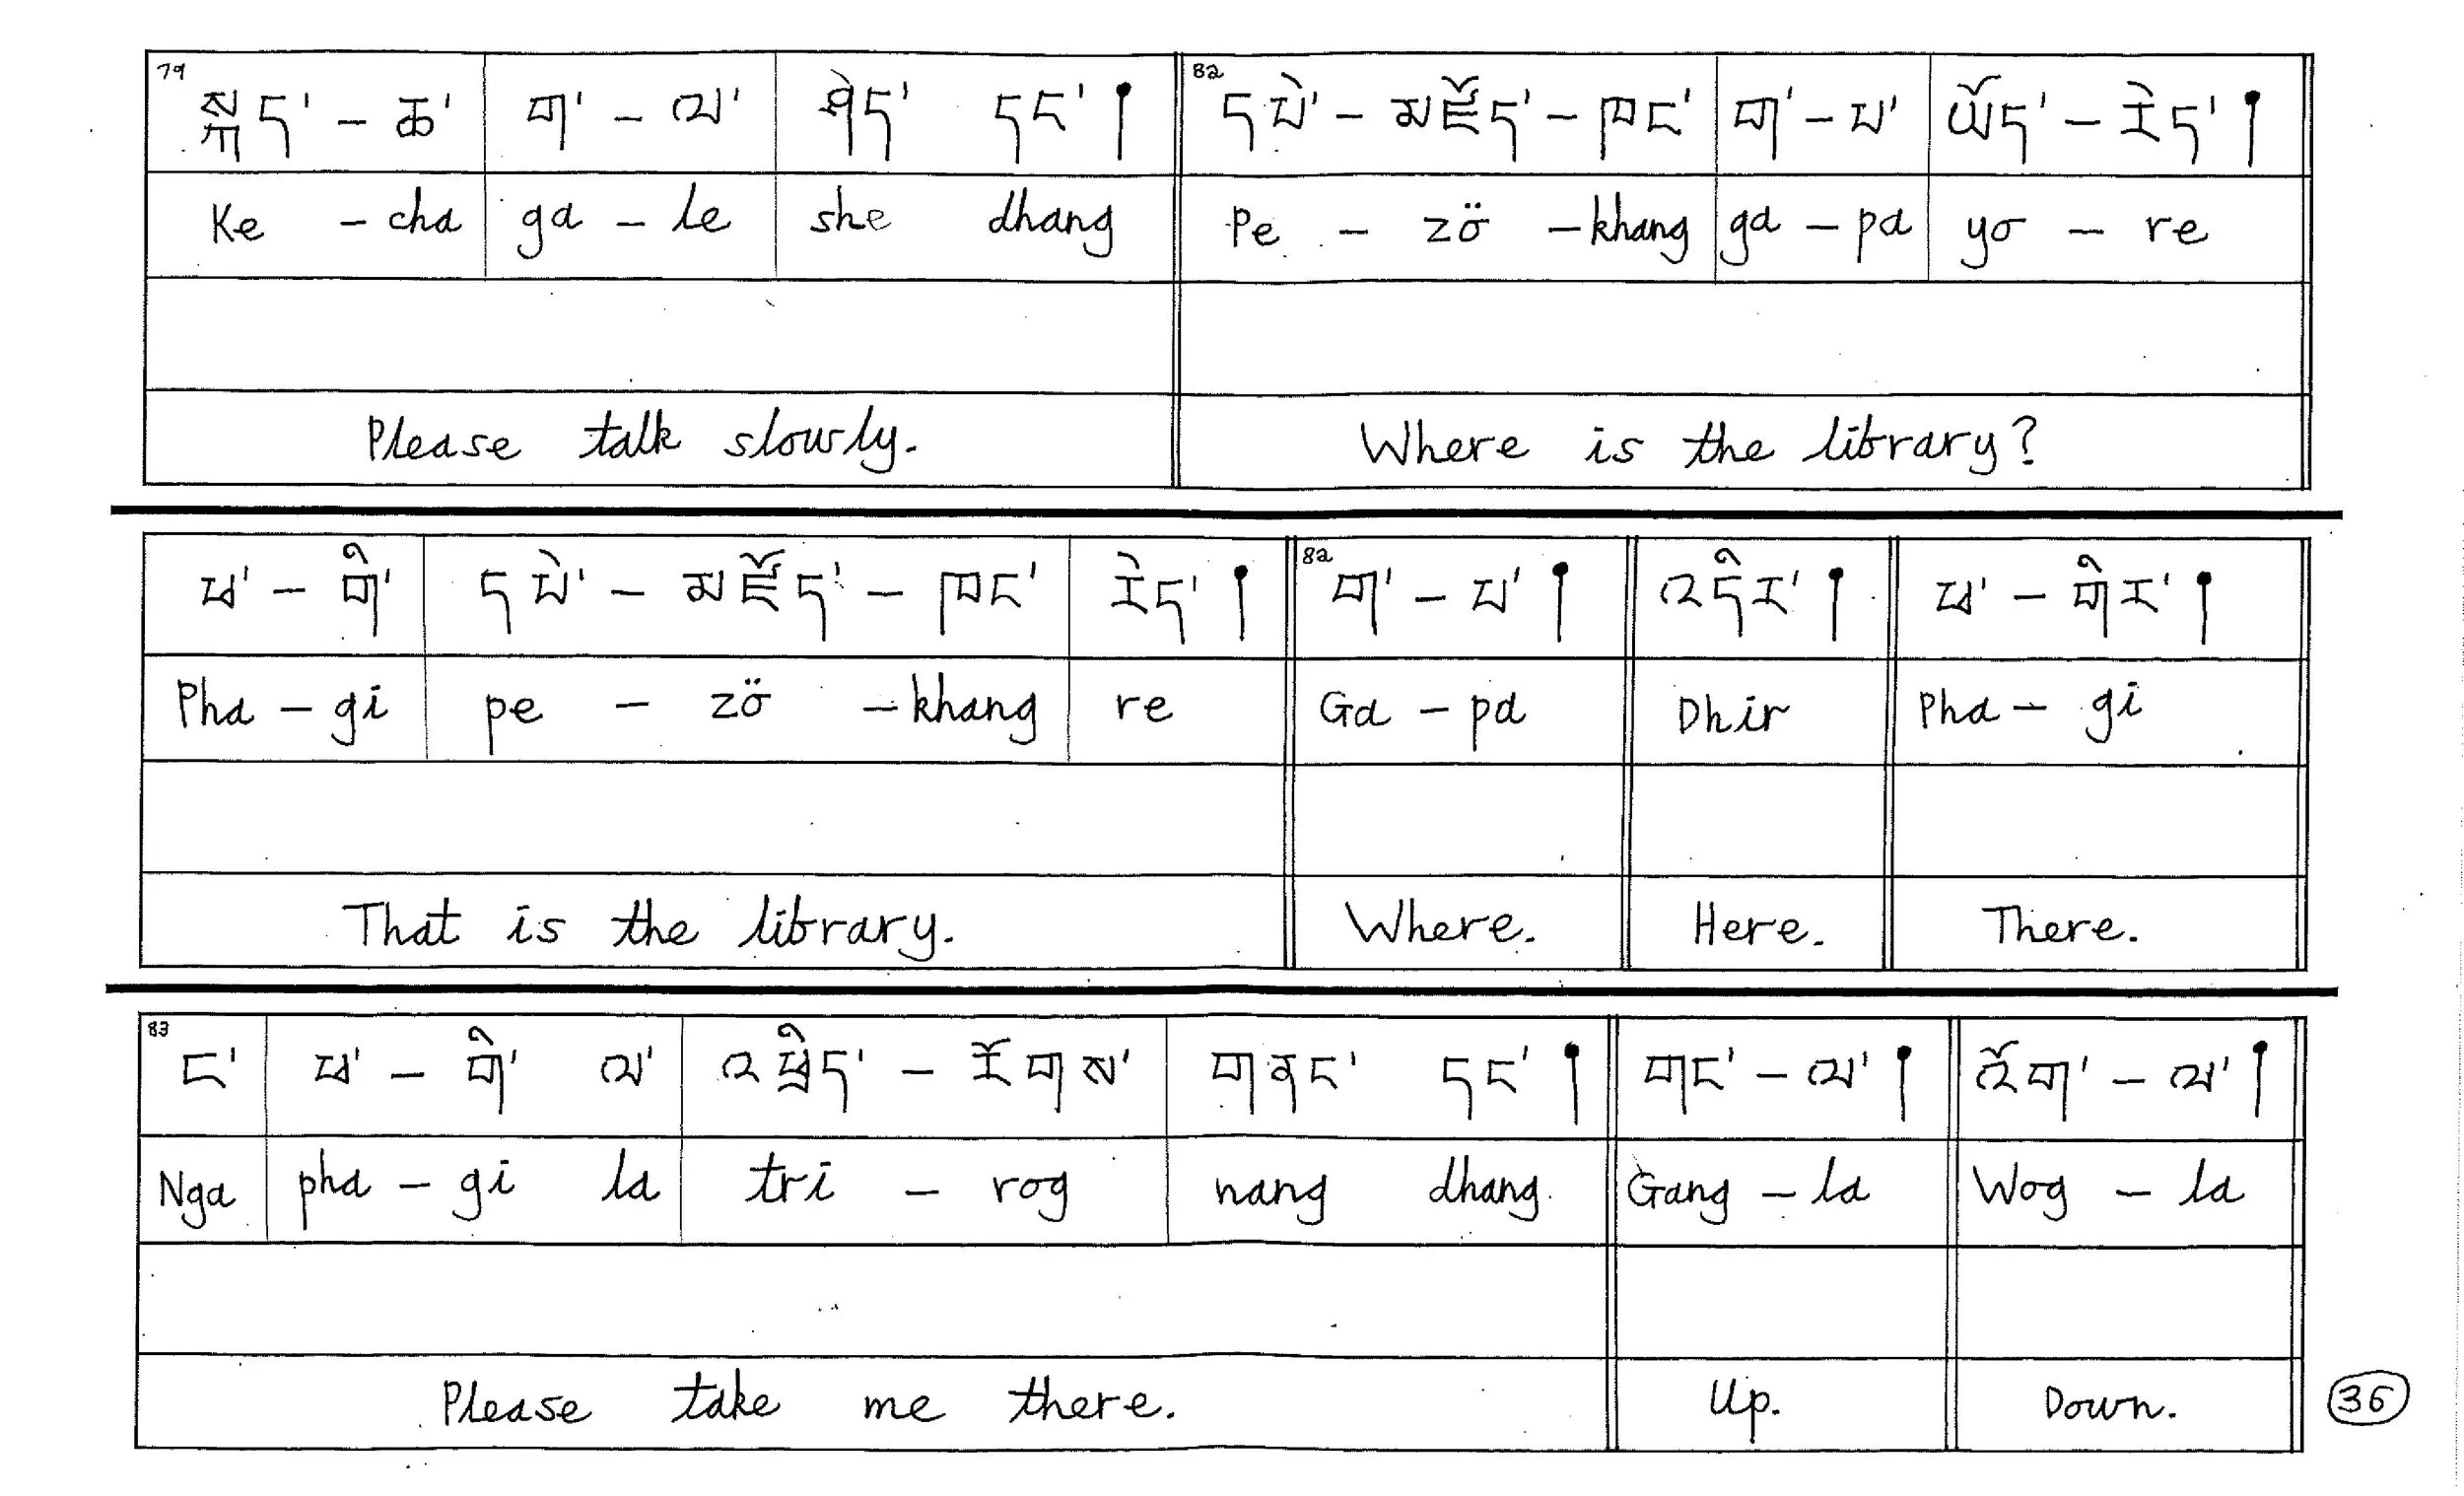 79 སྐད་ - ཆ་ ག་ - ལ་ ཤེད་ དང་ །
Ke - cha ga - le she dhang
Please talk slowly.
82 དཔེ་ - མཛོད་ - ཁང་ ག་ - པ་ ཡོད་ - རེད་ །
Pe - zö - khang ga - pa yo - re
Where is the library?
ཕ་ - གི་ དཔེ་ - མཛོད་ - ཁང་ རེད་ །
Pha - gi pe - zö - khang re
That is the library.
82 ག་ - པ་ ། འདིར་ ། ཕ་ - གིར་ །
Ga - pa Dhir Pha - gi
Where. Here. There.
83 ང་ ཕ་ - གི་ ལ་ འཁྲིད་ - རོགས་ གནང་ དང་ །
Nga pha - gi la tri - rog nang dhang
Please take me there.
གང་ - ལ་ ། འོག་ - ལ་ །
Gang - la Wog - la
Up. Down.
36